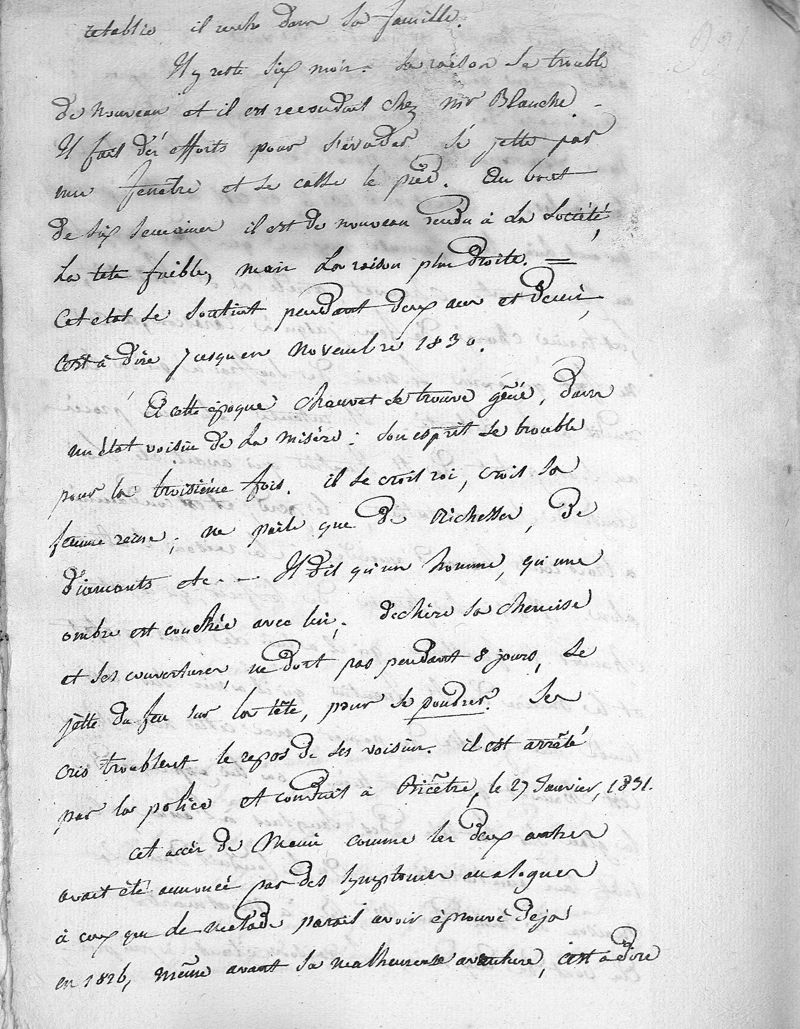 rétablie il rentre dans sa famille.
Il y reste six mois. Sa raison se trouble
de nouveau et il est reconduit chez mr Blanche.
Il fait des efforts pour s'évader se jette par
une fenêtre et se casse le pied. Au bout
de six semaines il est de nouveau rendu à la Société,
La tête faible, mais la raison plus droite. =
Cet état se soutint pendant deux ans et demi,
c'est à dire jusqu'en novembre 1830.
A cette époque Chauvet se trouve gêné, dans
un état voisin de la misère : son esprit se trouble
pour la troisième fois. il se croit roi, croit sa
femme reine ; ne parle que de Richesses, de
Diamants etc - - Il dit qu'un homme, qu'une
ombre est couchée avec lui ; déchire sa chemise
et ses couvertures, ne dort pas pendant 8 jours, se
jette du feu sur la tête, pour se poudrer. Ses
cris troublent le repos de ses voisins. il est arrêté
par la police et conduit à Bicêtre, le 27 Janvier, 1831.
cet accès de Manie comme les deux autres
avait été annoncé par des symptomes analogues
à ceux que le malade parait avoir éprouvé déjà
en 1826, même avant sa malheureuse aventure, c'est à dire